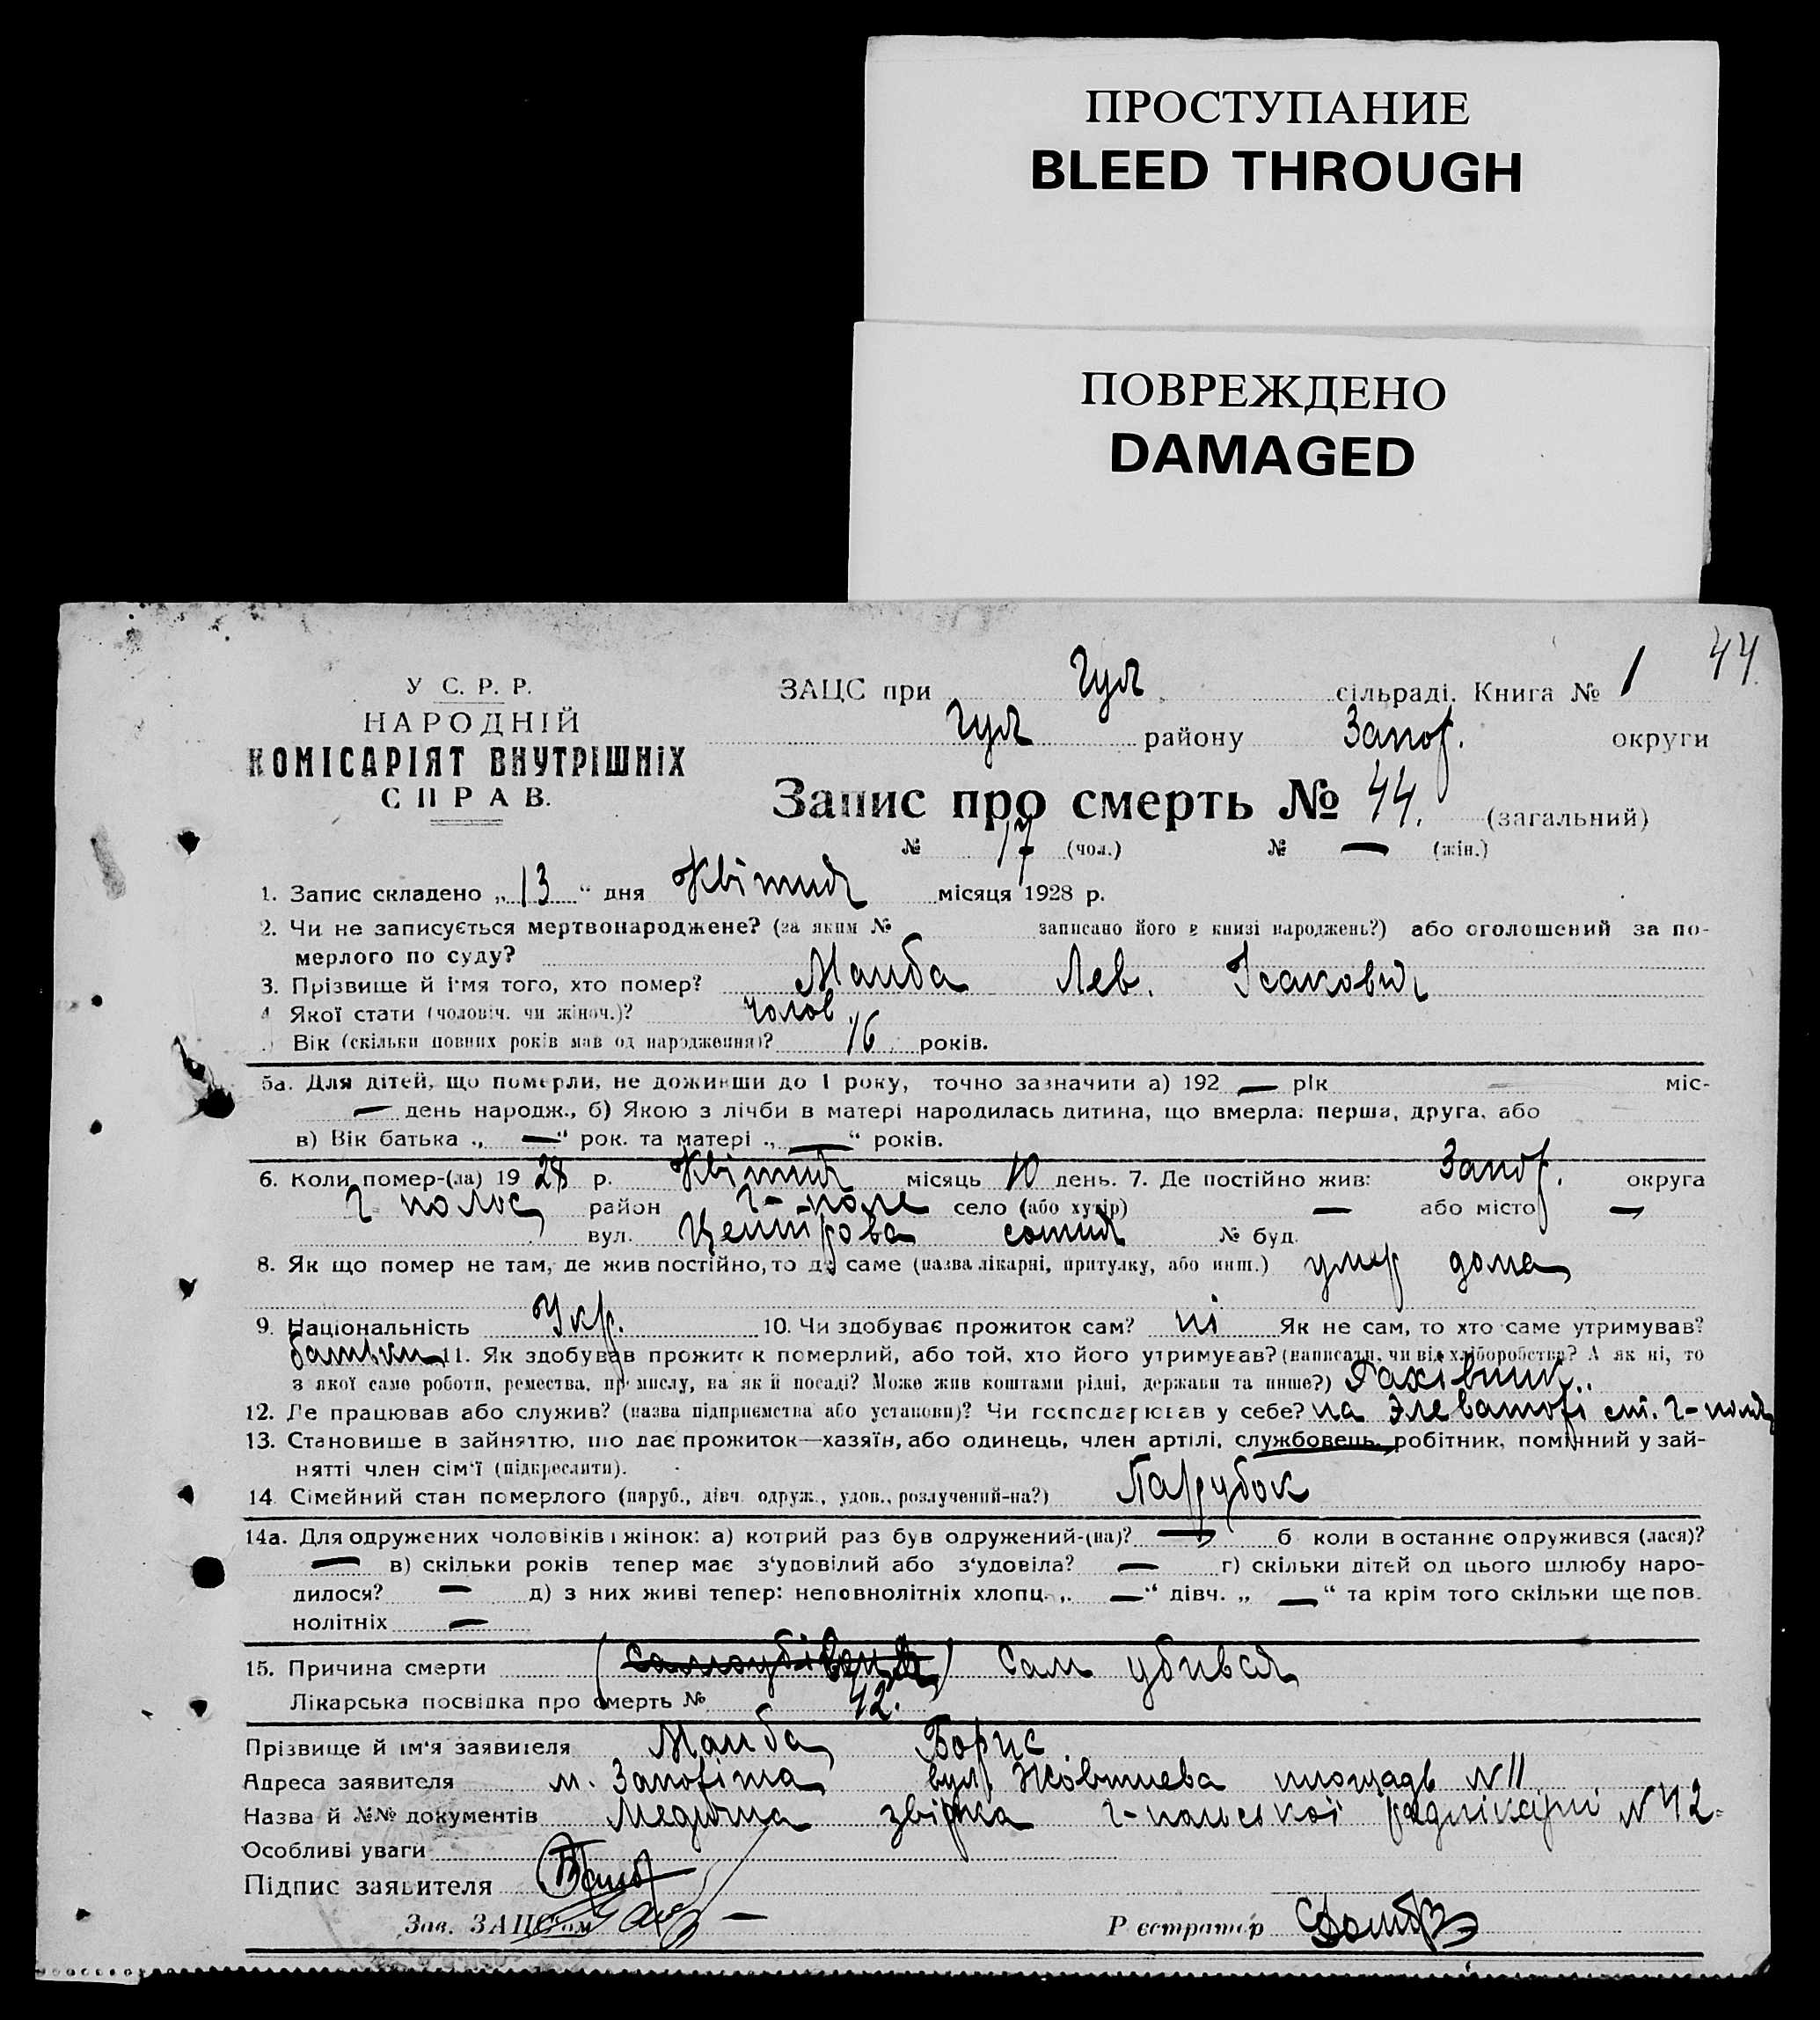 ПРОСТУПАНИЕ
BLEED THROUGH
ПОВРЕЖДЕНО
DAMAGED
44
У С. Р. Р.
НАРОДНІЙ
КОМІСАРІЯТ ВНУТРІШНІХ
СПРАВ.
ЗАЦС при Гул сільраді. Книга № 1
Гул району Запор. округи
Запис про смерть № 44. (загальний)
№ 17 (чол.) № — (жін.)
1. Запис складено „13“ дня Квітня місяця 1928 р.
2. Чи не записується мертвонароджене? (за яким № записано його в книзі народжень?) або оголошений за по-
мерлого по суду?
3. Прізвище й ім'я того, хто помер? Манба Лев. Ісакович
4 Якої стати (чоловіч. чи жіноч.)? чолов.
Вік (скільки повних років мав од народження)? 16 років.
5а. Для дітей, що померли, не доживши до 1 року, точно зазначити а) 192 — рік міс-
— день народж., б) Якою з лічби в матері народилась дитина, що вмерла: перша, друга, або
в) Вік батька „ — “ рок. та матері „ — “ років.
6. Коли помер-(ла) 1928 р. Квітня місяць 10 день. 7. Де постійно жив: Запор. округа
Г-полос район Г-поле село (або хутір) — або місто —
вул. Центрова сотня № буд.
8. Як що помер не там, де жив постійно, то де саме (назва лікарні, притулку, або инш.) умер дома
9. Національність Укр. 10. Чи здобував прожиток сам? ні Як не сам, то хто саме утримував?
батьки 11. Як здобував прожиток померлий, або той, хто його утримував? (написати, чи від хліборобства? А як ні, то
з якої саме роботи, ремества, промислу, на якій посаді? Може жив коштами рідні, держави та инше?) Рахівник..
12. Де працював або служив? (назва підприємства або установи)? Чи господарював у себе? на Элеваторі ст. Г-поля
13. Становище в зайняттю, що дає прожиток—хазяїн, або одинець, член артілі, службовець, робітник, помічний у зай-
нятті член сім'ї (підкреслити).
14. Сімейний стан померлого (паруб., дівч. одруж., удов., розлучений-на?) Парубок
14а. Для одружених чоловіків і жінок: а) котрий раз був одружений-(на)? — б коли востаннє одружився (лася)?
— в) скільки років тепер має з'удовілий або з'удовіла? — г) скільки дітей од цього шлюбу наро-
дилося? — д) з них живі тепер: неповнолітніх хлопц. „ — “ дівч. „ — “ та крім того скільки ще пов.
нолітніх —
15. Причина смерти Сам убився
Лікарська посвідка про смерть № 42.
Прізвище й ім'я заявителя Манба Борис
Адреса заявителя м. Запоріжа вул. Жовтнева площадь №11
Назва й №№ документів Медична звірка Г-польської радлікарні № 42.
Особливі уваги
Підпис заявителя
Зав. ЗАЦС'ом
Реєстратор